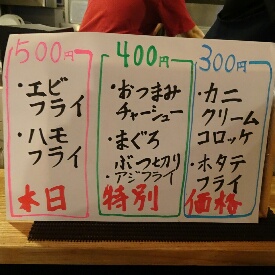 500円
・エビ
フライ
・ハモ
フライ
本日
400円
・おつまみ
チャーシュー
・まぐろ
ぶつ切り
・アジフライ
特別
300円
・カニ
クリーム
コロッケ
・ホタテ
フライ
価格